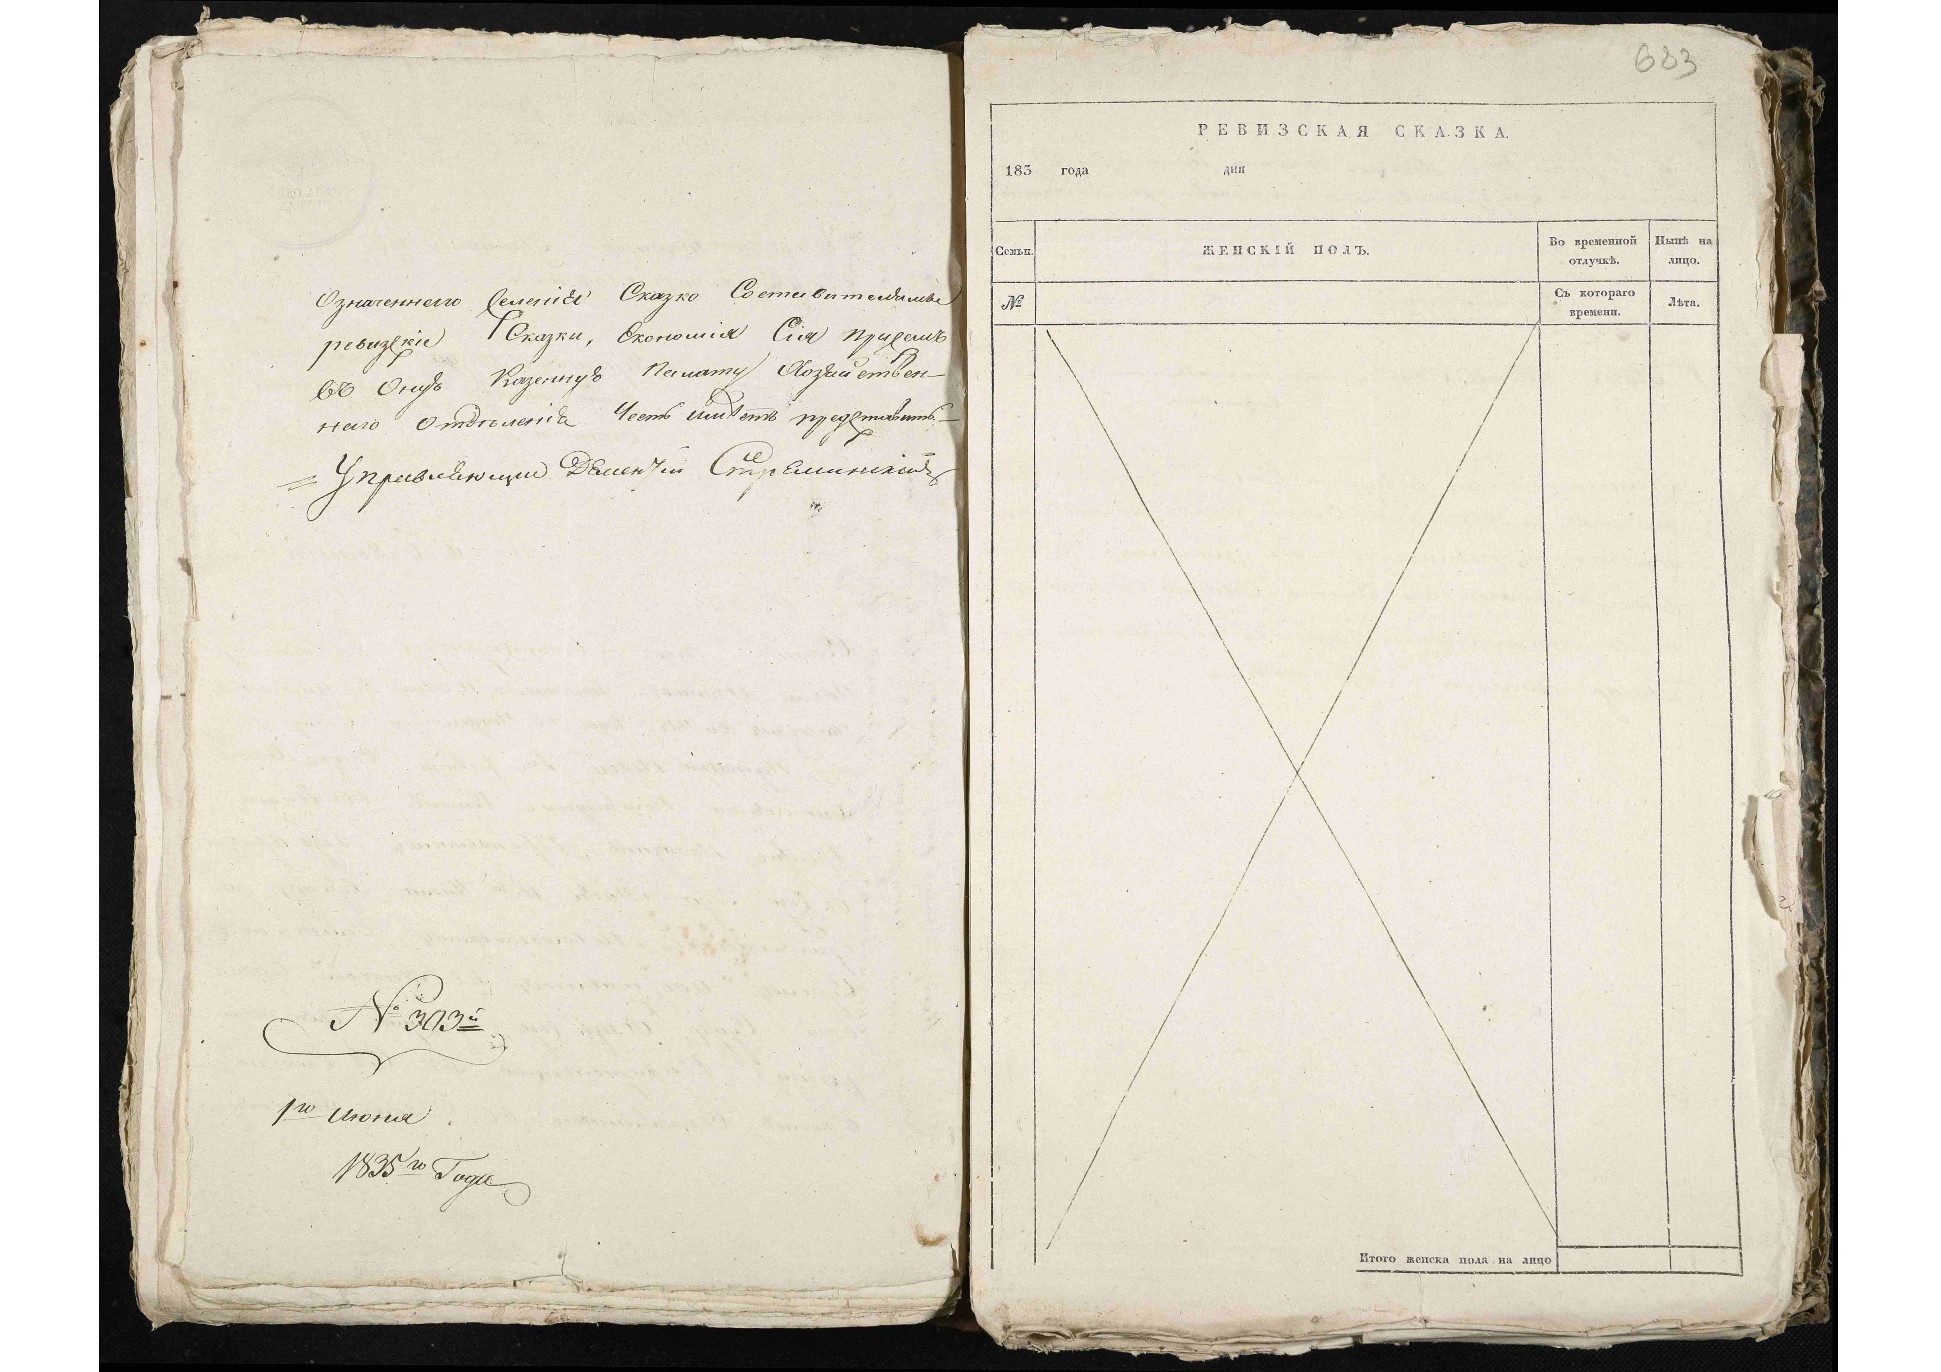 Означеннаго Селенія Сказко Составительмы
ревизскіе Сказки, Економія Сія при семъ
въ Оную Казенную Палату Хозяйствен-
наго Отдѣленія Честь имѣетъ представить.
Управляющій Дементій
№ 303й
1го Июня
1835го Года
683
РЕВИЗСКАЯ СКАЗКА.
183 года дня
Семьи. ЖЕНСКІЙ ПОЛЪ. Во временной отлучкѣ. Нынѣ на лицо.
№ Съ котораго времени. Лѣта.
Итого женска пола на лицо